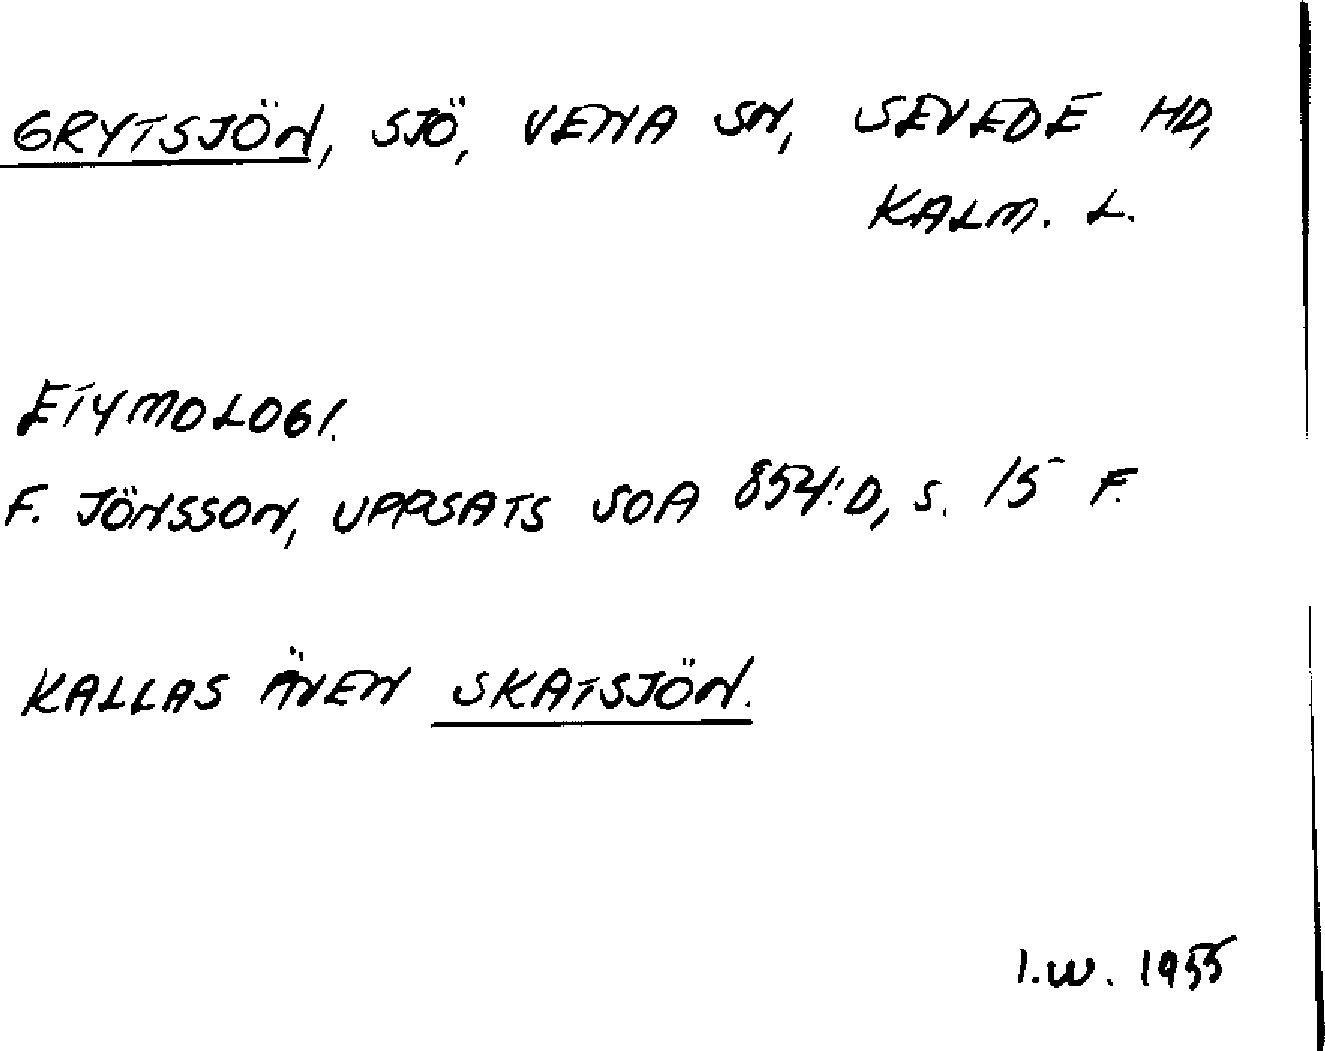 GRYTSJÖN, SJÖ, VENA SN, SEVEDE HD,
KALM. L.
ETYMOLOGI.
F. JÖNSSON, UPPSATS SOA 854:D, S. 15 F.
KALLAS ÄVEN SKATSJÖN.
I.W. 1955